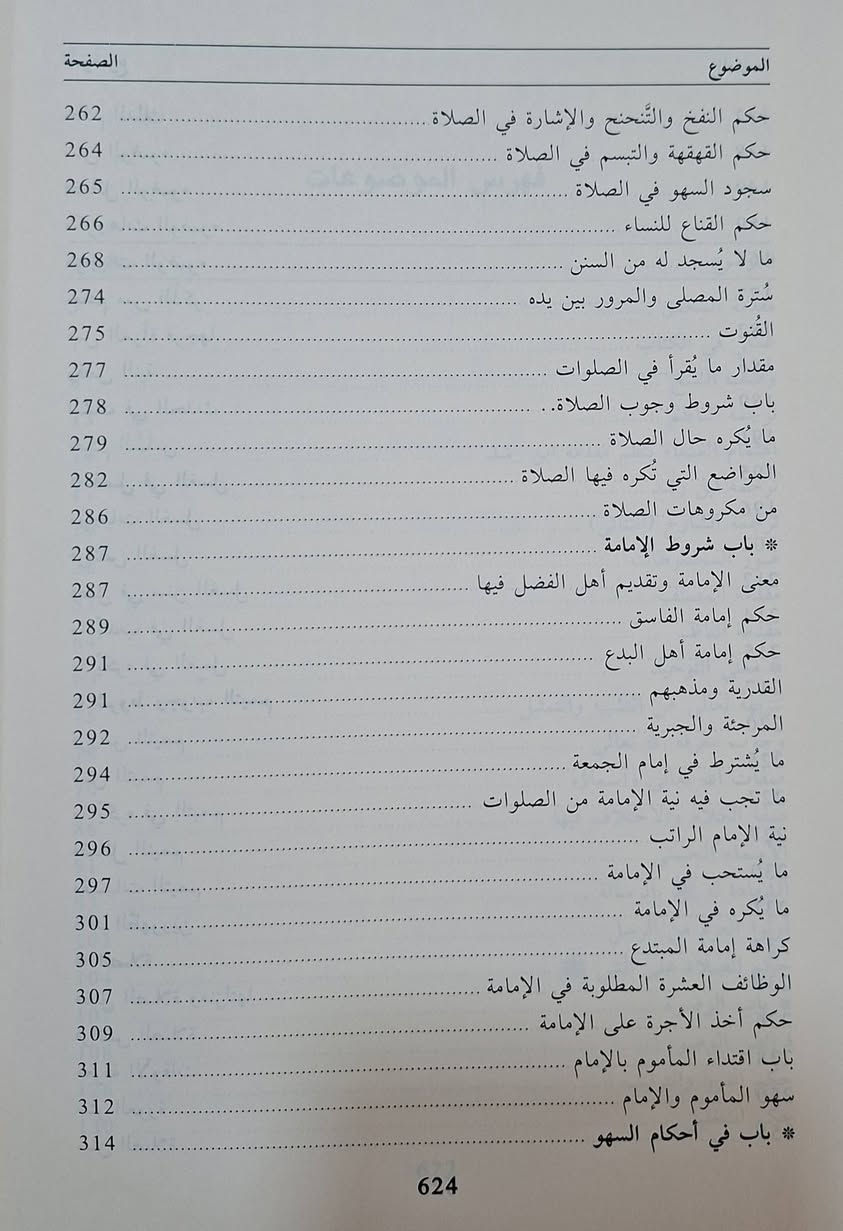 الموضوع الصفحة
حكم النفخ والتَّنحنح والإشارة في الصلاة ........ 262
حكم القهقهة والتبسم في الصلاة ........ 264
سجود السهو في الصلاة ........ 265
حكم القناع للنساء ........ 266
ما لا يُسجد له من السنن ........ 268
سُترة المصلى والمرور بين يده ........ 274
القُنوت ........ 275
مقدار ما يُقرأ في الصلوات ........ 277
باب شروط وجوب الصلاة.. ........ 278
ما يُكره حال الصلاة ........ 279
المواضع التي تُكره فيها الصلاة ........ 282
من مكروهات الصلاة ........ 286
* باب شروط الإمامة ........ 287
معنى الإمامة وتقديم أهل الفضل فيها ........ 287
حكم إمامة الفاسق ........ 289
حكم إمامة أهل البدع ........ 291
القدرية ومذهبهم ........ 291
المرجئة والجبرية ........ 292
ما يُشترط في إمام الجمعة ........ 294
ما تجب فيه نية الإمامة من الصلوات ........ 295
نية الإمام الراتب ........ 296
ما يُستحب في الإمامة ........ 297
ما يُكره في الإمامة ........ 301
كراهة إمامة المبتدع ........ 305
الوظائف العشرة المطلوبة في الإمامة ........ 307
حكم أخذ الأجرة على الإمامة ........ 309
باب اقتداء المأموم بالإمام ........ 311
سهو المأموم والإمام ........ 312
* باب في أحكام السهو ........ 314
624